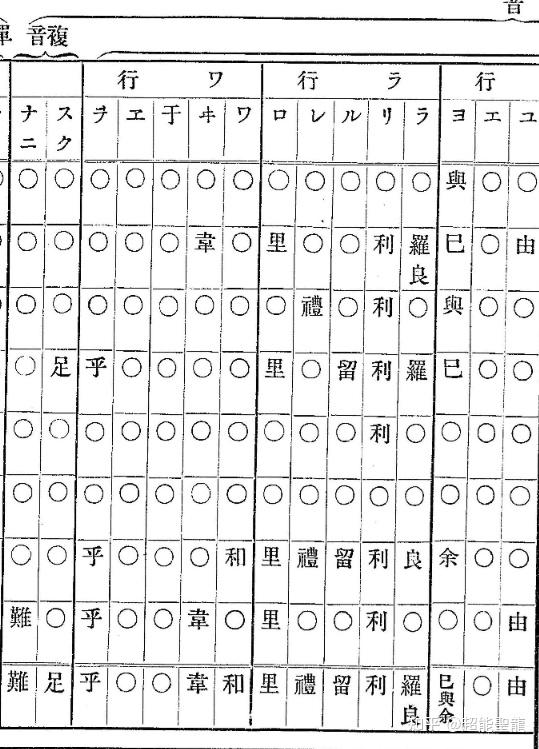 音
複音
行 ラ行 ワ行
ユ エ ヨ ラ リ ル レ ロ ワ ヰ 于 ヱ ヲ スク ナニ
○ ○ 與 ○ ○ ○ ○ ○ ○ ○ ○ ○ ○ ○ ○
由 ○ 巳 羅良 利 ○ ○ 里 ○ 韋 ○ ○ ○ ○ ○
○ ○ 與 ○ 利 ○ 禮 ○ ○ ○ ○ ○ ○ ○ ○
○ ○ 巳 羅 利 留 ○ 里 ○ ○ ○ ○ 乎 足 ○
○ ○ ○ ○ 利 ○ ○ ○ ○ ○ ○ ○ ○ ○ ○
○ ○ ○ ○ ○ ○ ○ ○ ○ ○ ○ ○ ○ ○ ○
○ ○ 余 良 利 留 禮 里 和 ○ ○ ○ 乎 ○ ○
由 ○ ○ ○ 利 ○ ○ 里 ○ 韋 ○ ○ 乎 ○ 難
由 ○ 巳與余 羅良 利 留 禮 里 和 韋 ○ ○ 乎 足 難
知乎 @超能聖龍